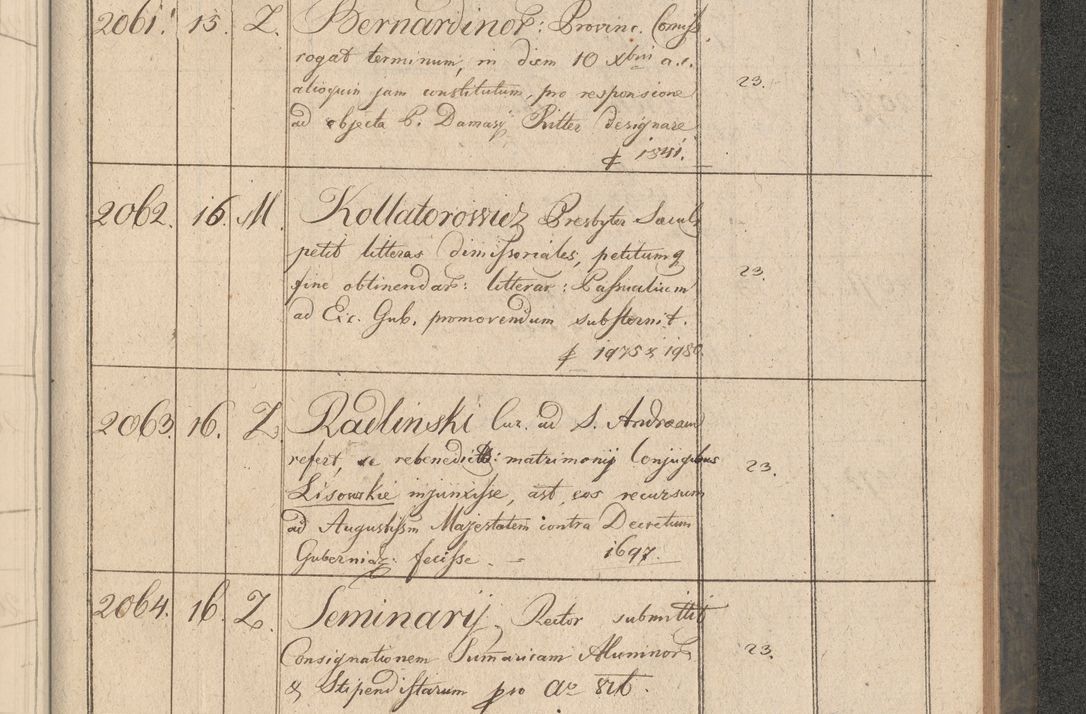 2061. 15. Z. Bernardinor: Provinc. Comiss.
rogat terminum, in diem 10 Xbris a.c.
alioquin jam constitutum, pro responsione 23.
ad objecta P. Damasy Ritter designare
1841.
2062. 16. M. Kollatorowicz Presbyter Saecul.
petit litteras dimissoriales, petitumq
fine obtinendar: litterar: Passualium 23.
ad Exc. Gub. promovendum substernit.
1975 & 1980.
2063. 16. Z. Radlinski Cur. ad S. Andream
refert, se matrimonij Conjugibus
Lisowskie injunxisse, ast eos recursum 23.
ad Augustissm Majestatem contra Decretum
Gubernia: fecisse. - 1697.
2064. 16. Z. Seminarij Rector submittit
Consignationem Sumaricam Alumnor 23.
& Stipendistarum pro